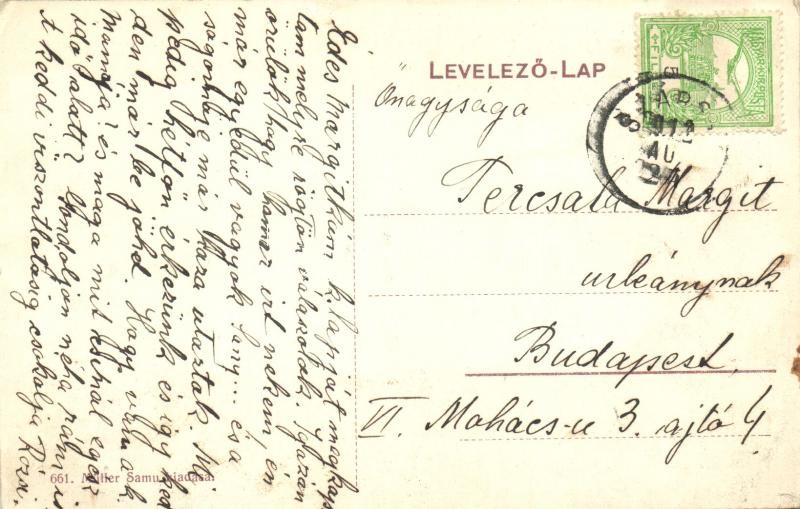 LEVELEZŐ-LAP
Önagysága
Tercsala Margit
urleánynak
Budapest
VI. Mohács-u 3. ajtó 4
Édes Margitkám k. lapját megkap
tam melyre rögtön válaszolok. Igazán
örülök, hogy hamar irt nekem, én
már egyedül vagyok s a
sógornője már haza utaztak. Mi
pedig hétfőn érkezünk és igy ked
den már be jöhd. Hogy vannak
Mamája és maga mit csinál egész
idő alatt? Gondoljon néha rám is
A keddi viszontlátásig csókolja Rózsi.
661. Müller Samu kiadása.